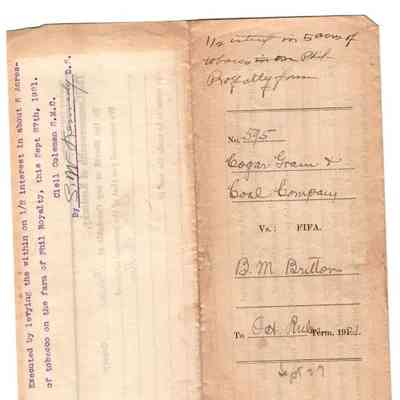 Executed by levying the within on 1/2 interest in about 5 Acres-
of tobacco on the farm of Phil Royalty, this Sept 27th, 1921.
Clell Coleman S.M.C.
By S.M. Kennedy D.S.
1/2 interest in 5 acres of
tobacco on Phil
Royalty farm
No. 595
Cogar Grain &
Coal Company
Vs: FIFA.
B. M. Britton
To Oct Rule Term, 1921.
Sept 27